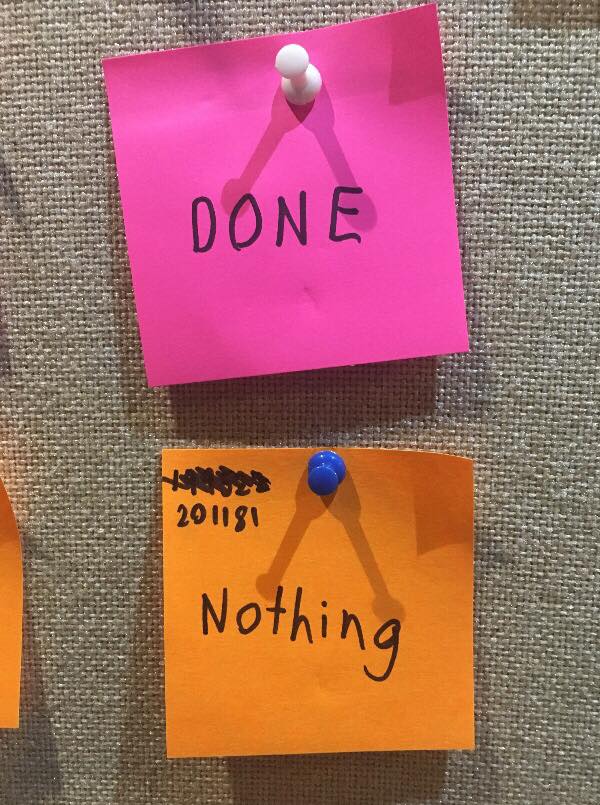 DONE
201181
Nothing